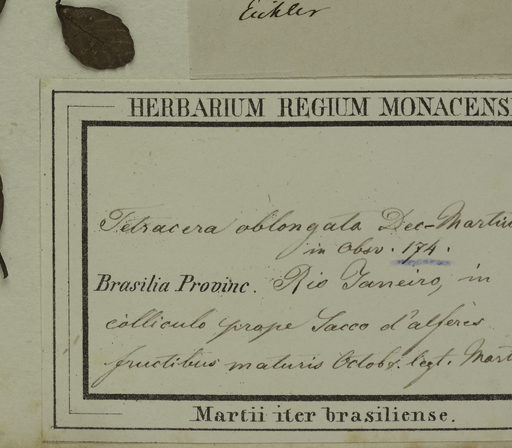 Eichler
HERBARIUM REGIUM MONACENS
Tetracera oblongata Dec-Martius
in Obsv. 174.
Brasilia Provinc. Rio Janeiro, in
colliculo prope Sacco d'alferes
fructibus maturis Octobr. legt. Mart
Martii iter brasiliense.